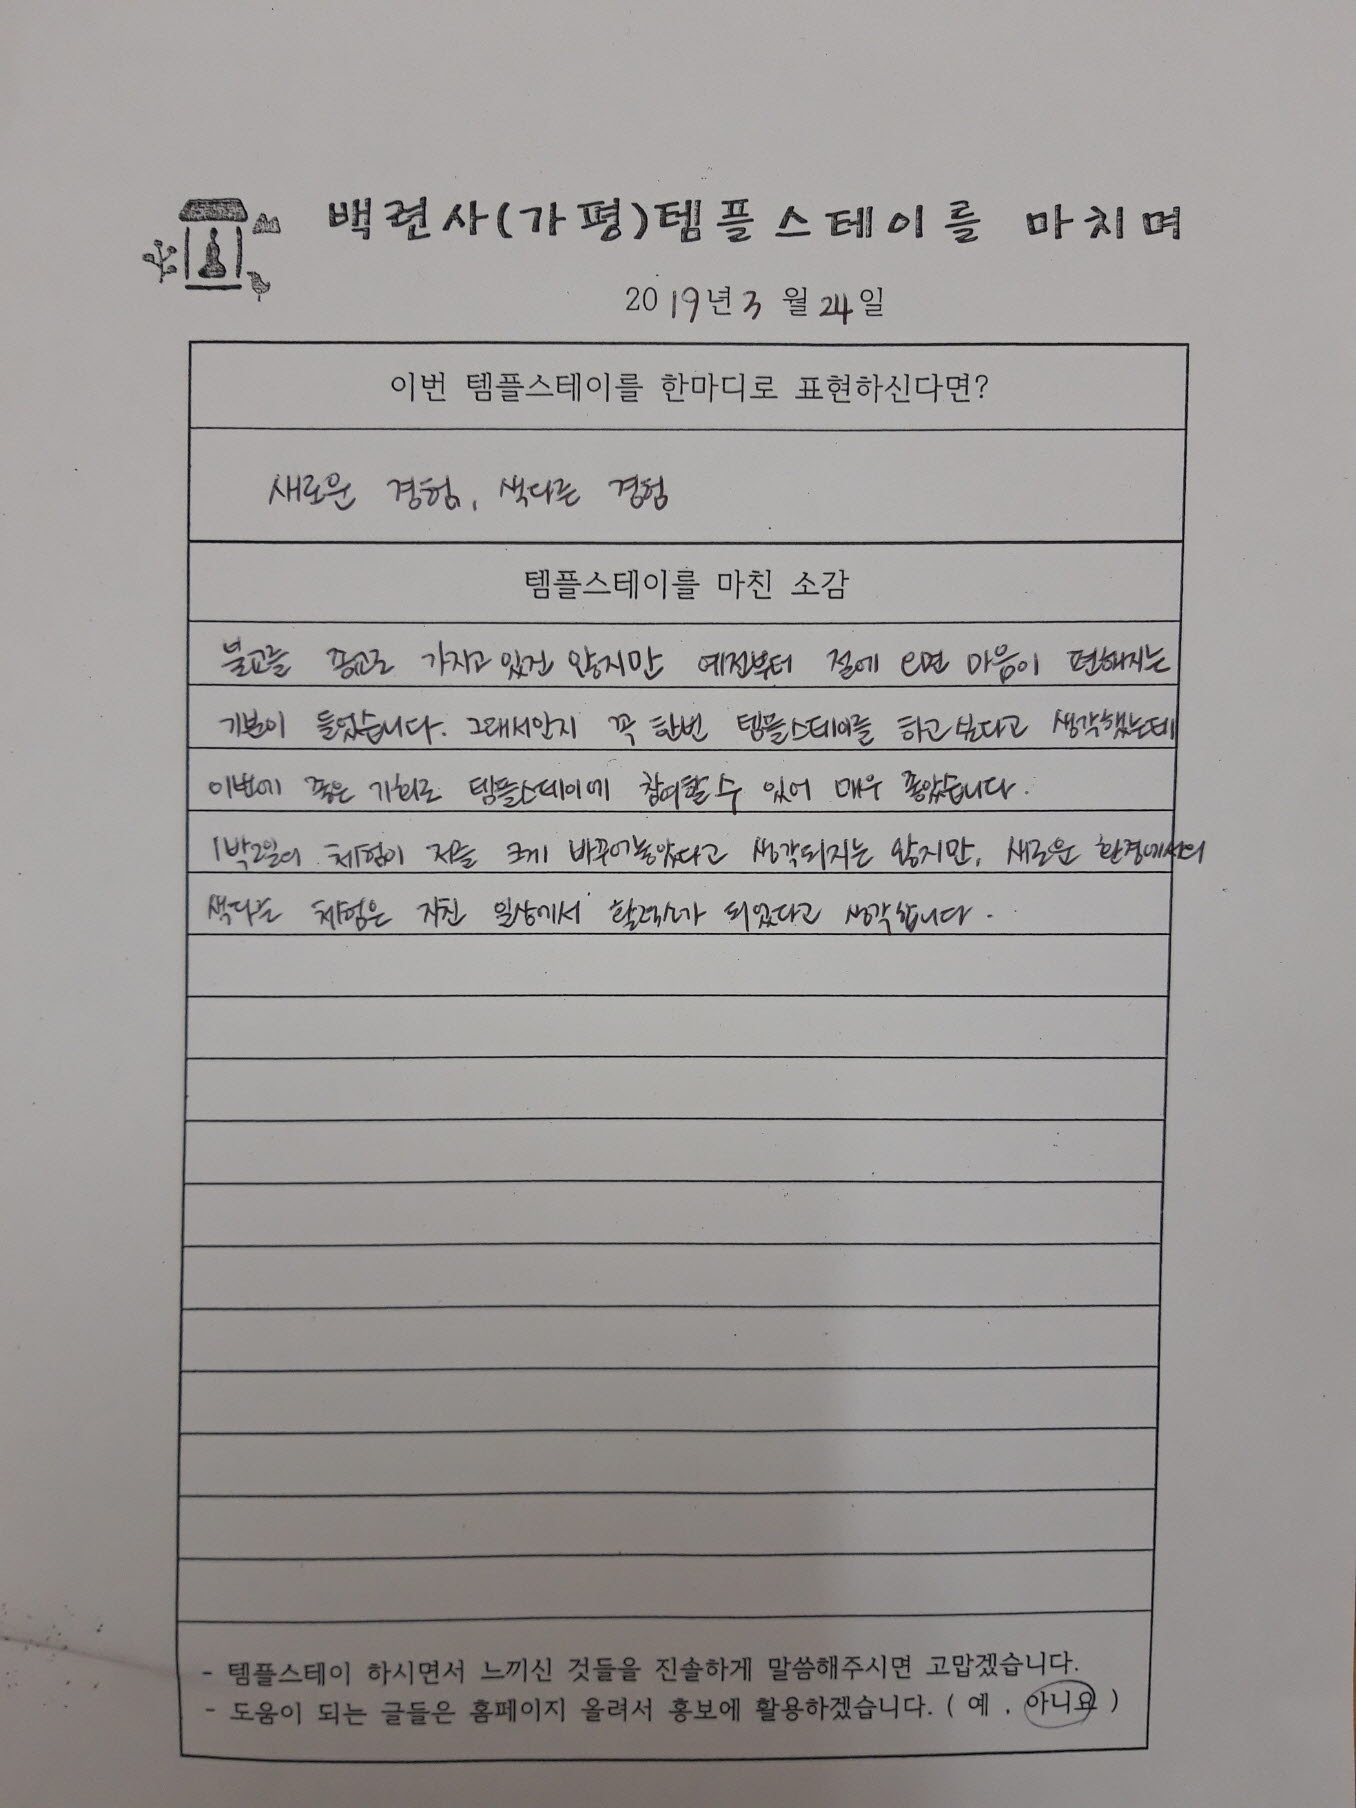 백련사(가평)템플스테이를 마치며
2019년 3월 24일
이번 템플스테이를 한마디로 표현하신다면?
새로운 경험, 색다른 경험
템플스테이를 마친 소감
불교를 종교로 가지고 있진 않지만 예전부터 절에 오면 마음이 편해지는
기분이 들었습니다. 그래서인지 꼭 한번 템플스테이를 하고 싶다고 생각했는데
이번에 좋은 기회로 템플스테이에 참여할 수 있어 매우 좋았습니다.
1박2일의 체험이 저를 크게 바꾸어놓았다고 생각되지는 않지만, 새로운 환경에서의
색다른 체험은 지친 일상에서 활력소가 되었다고 생각합니다.
- 템플스테이 하시면서 느끼신 것들을 진솔하게 말씀해주시면 고맙겠습니다.
- 도움이 되는 글들은 홈페이지 올려서 홍보에 활용하겠습니다. ( 예 , 아니요 )